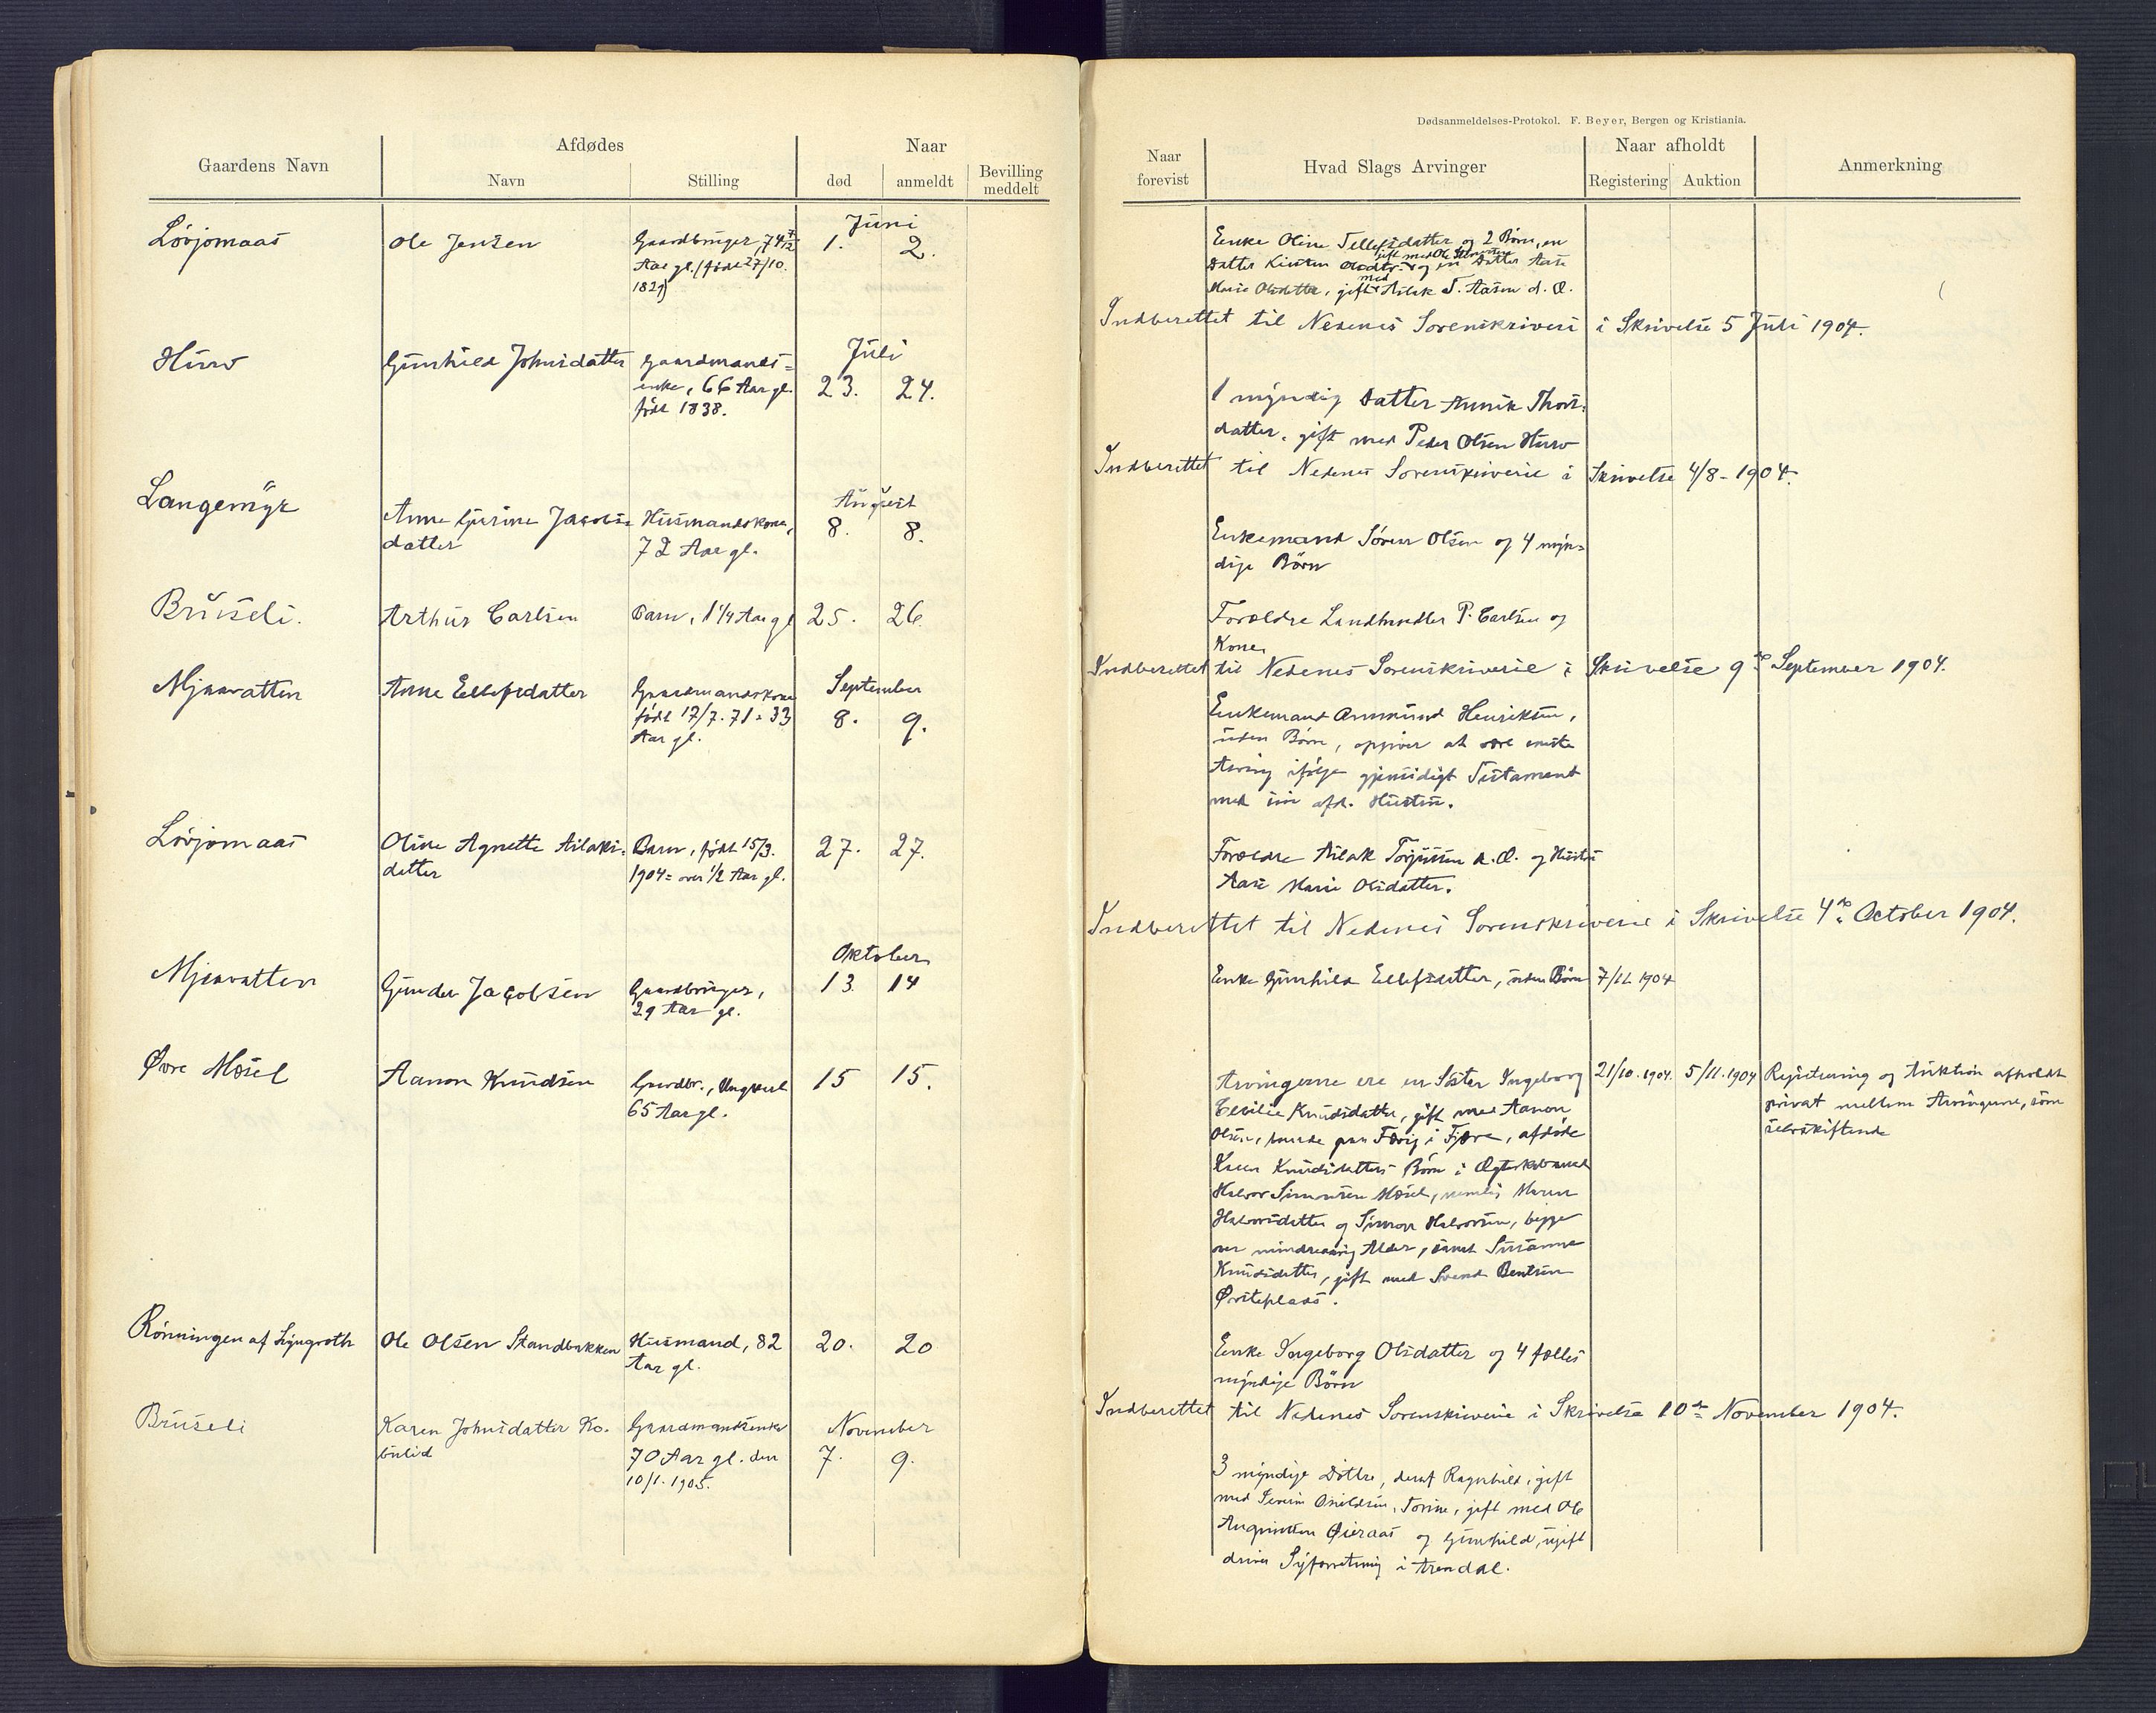 Dødsanmeldelses-Protokol. F. Beyer, Bergen og Kristiania.
Gaardens Navn
Afdødes
Navn
Stilling
Naar
død
anmeldt
Bevilling
meddelt
Naar
forevist
Hvad Slags Arvinger
Naar afholdt
Registering
Auktion
Anmerkning
Løvjomaas
Ole Jensen
Gaardbruger, 74 7/12
Aar gl. (født 27/10.
1829)
Juni
1.
2.
Enke Oline Tellefsdatter og 2 Børn, en
Datter Kirsten Olsdtr. og en Datter Aase
Marie Olsdatter, gift med Aslak T. Aasen d. Æ.
Indberettet til Nedenes Sorenskriveri i Skrivelse 5 Juli 1904.
Hurv
Gunhild Johnsdatter
Gaardmands=
enke, 66 Aar gl.
født 1838.
Juli
23.
24.
1 myndig Datter Annik Thors=
datter, gift med Peder Olsen Hurv
Indberettet til Nedenes Sorenskriverie i Skrivelse 4/8 - 1904.
Langemyr
Anne Gurine Jacobs=
datter
Husmandskone,
72 Aar gl.
August
8.
8.
Enkemand Søren Olsen og 4 myn=
dige Børn
Bruseli.
Arthur Carlsen
Barn, 1 1/4 Aar gl
25.
26.
Forældre Landhandler P. Carlsen og
Kone
Indberettet til Nedenes Sorenskriverie i Skrivelse 9de September 1904.
Mjaavatten
Anne Ellefsdatter
Gaardmandskone
født 17/7. 71 = 33
Aar gl.
September
8.
9.
Enkemand Anmund Henriksen,
uden Børn, opgiver at være eneste
Arving ifølge gjensidigt Testament
med sin afd. Hustru.
Løvjomaas
Oline Agnette Aslaks=
datter
Barn, født 15/3.
1904 = over 1/2 Aar gl.
27.
27.
Forældre Aslak Torjussen d. Æ. og Hustru
Aase Marie Olsdatter.
Indberettet til Nedenes Sorenskriverie i Skrivelse 4de October 1904.
Mjaavatten
Gunder Jacobsen
Gaardbruger,
29 Aar gl.
Oktober
13.
14
Enke Gunhild Ellefsdatter, uden Børn
7/11 1904
Øvre Mosel
Aanon Knudsen
Gaardbr., Ungkarl
65 Aar gl.
15
15.
Arvingerne ere en Søster Ingeborg
Cecilie Knudsdatter, gift med Aanon
Olsen, boende paa i Fjære, afdøde
Karen Knudsdatters Børn i Ægteskab med
Halvor Simonsen Mosel, nemlig Maren
Halvorsdatter og Simon Halvorsen, begge
over mindreaarig Alder, samt Susanne
Knudsdatter, gift med Svend Bentsen
Øvsteplass.
21/10. 1904.
5/11. 1904
Registrering og Auktion afholdt
privat mellem Arvingerne, som
selvskiftende
Rønningen af Lyngroth
Ole Olsen Standbakken
Husmand, 82
Aar gl.
20.
20
Enke Ingeborg Olsdatter og 4 fælles
myndige Børn
Indberettet til Nedenes Sorenskriverie i Skrivelse 10de November 1904.
Bruseli
Karen Johnsdatter
Gaardmandsenke
70 Aar gl. den
10/1. 1905.
November
7.
9.
3 myndige Døttre, deraf Ragnhild, gift
med Severin Osuldsen, Torine, gift med Ole
Øieraas og Gunhild, ugift
driver Syforretning i Arendal.